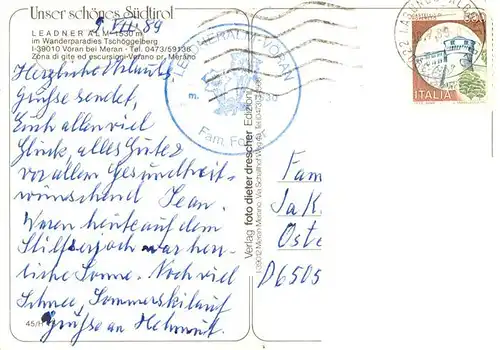 Unser schönes Südtirol
9. VII. 89
LEADNER ALM 1530 m
im Wanderparadies Tschögglberg
I-39010 Vöran bei Meran - Tel. 0473/59136
Zona di gite ed escursioni-Verano pr. Merano
Herzliche Urlaubs,
Grüsse sendet,
Euch allen viel
Glück, alles Gute
vor allem Gesundheit
wünschend Jean.
Waren heute auf dem
Stilfserjoch war herr-
liche Sonne. Noch viel
Schnee, Sommerskilauf
Grüsse an Helmut.
45/H
LEADNERALM VÖRAN
m. 1530
Fam.
Verlag foto dieter drescher Edizioni
I-39012 Meran-Merano
ITALIA
Fam
Jak
Oste
D6505